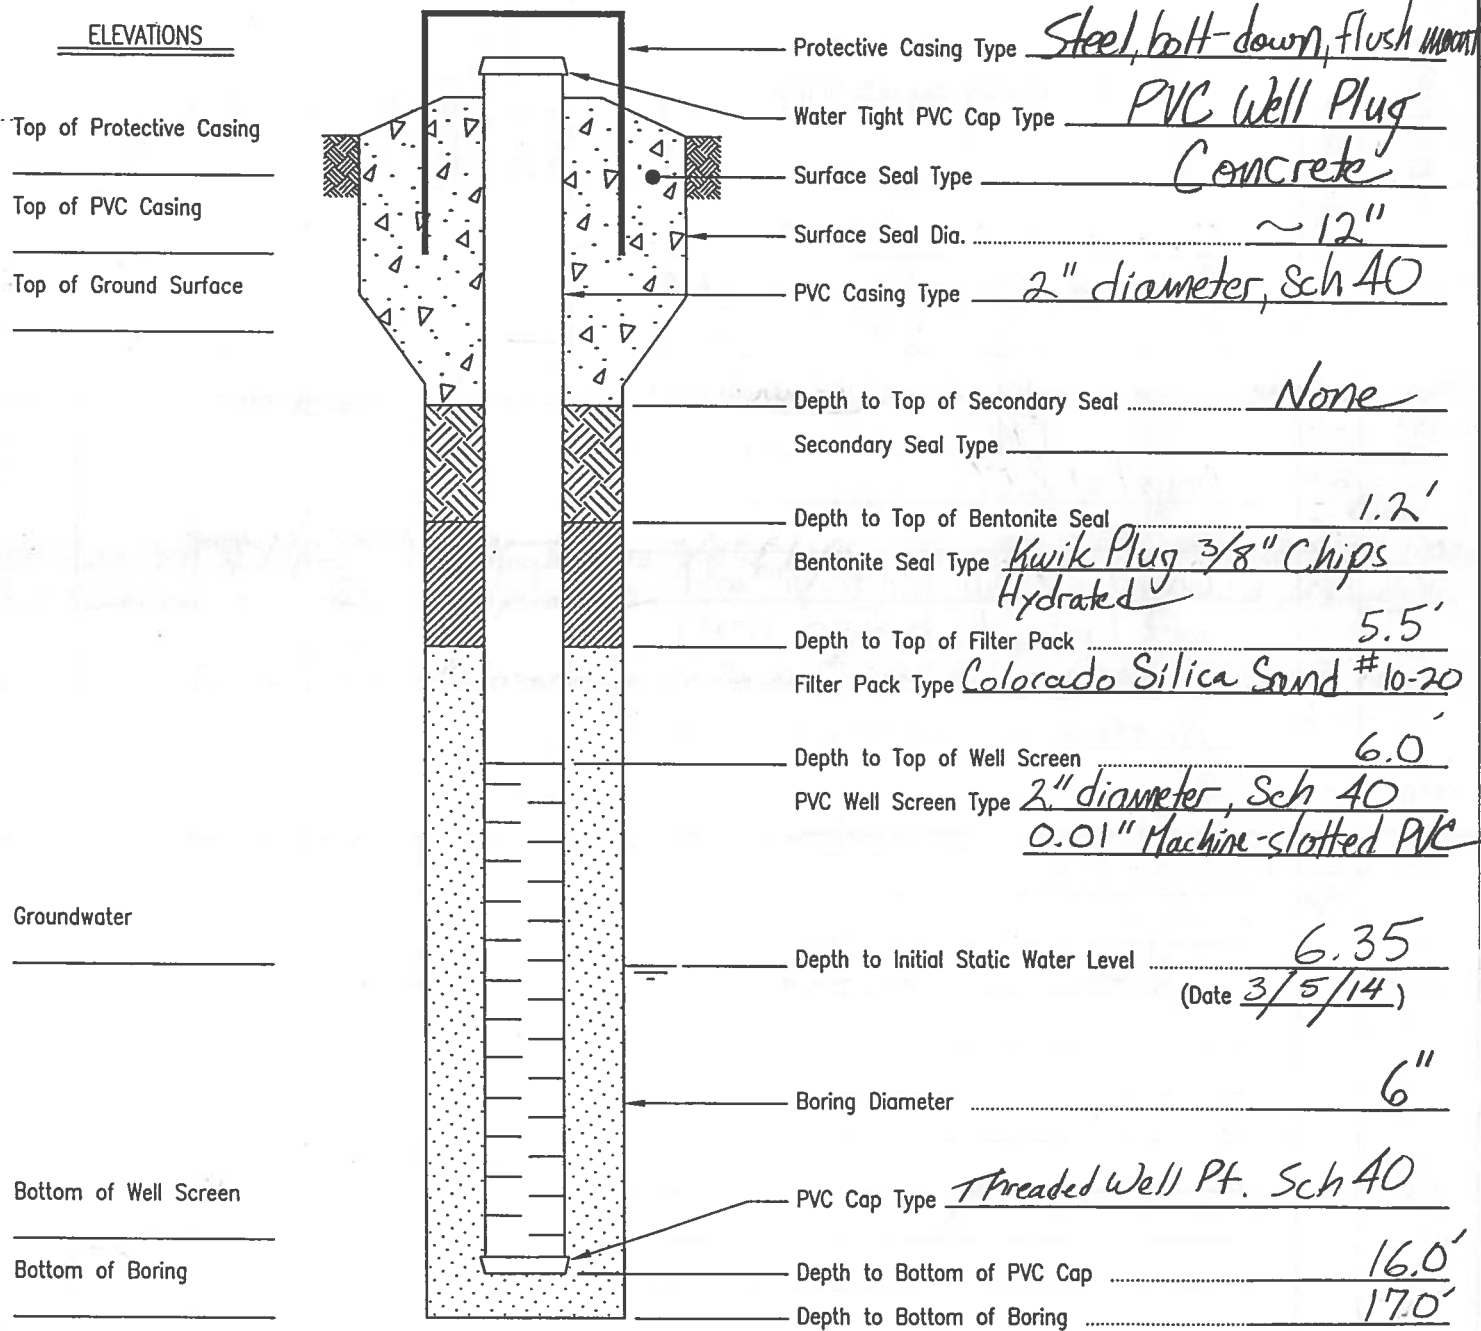 ELEVATIONS
Top of Protective Casing
Top of PVC Casing
Top of Ground Surface
Groundwater
Bottom of Well Screen
Bottom of Boring
Protective Casing Type Steel, bolt-down, flush mount
Water Tight PVC Cap Type PVC Well Plug
Surface Seal Type Concrete
Surface Seal Dia. ~12"
PVC Casing Type 2" diameter, Sch 40
Depth to Top of Secondary Seal None
Secondary Seal Type
Depth to Top of Bentonite Seal 1.2'
Bentonite Seal Type Kwik Plug 3/8" Chips
Hydrated
Depth to Top of Filter Pack 5.5'
Filter Pack Type Colorado Silica Sand #10-20
Depth to Top of Well Screen 6.0'
PVC Well Screen Type 2" diameter, Sch 40
0.01" Machine-slotted PVC
Depth to Initial Static Water Level 6.35
(Date 3/5/14)
Boring Diameter 6"
PVC Cap Type Threaded Well Pt. Sch 40
Depth to Bottom of PVC Cap 16.0'
Depth to Bottom of Boring 17.0'